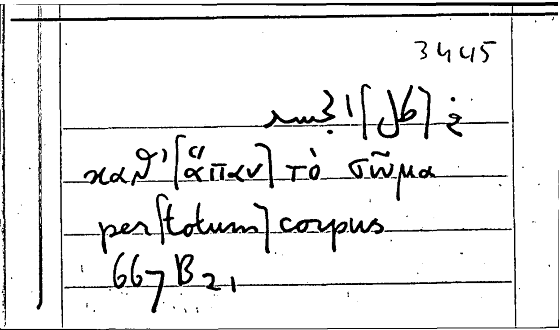 3445
في [كل]
καθ' [ἅπαν] τὸ σῶμα
per [totum] corpus
667 B 21